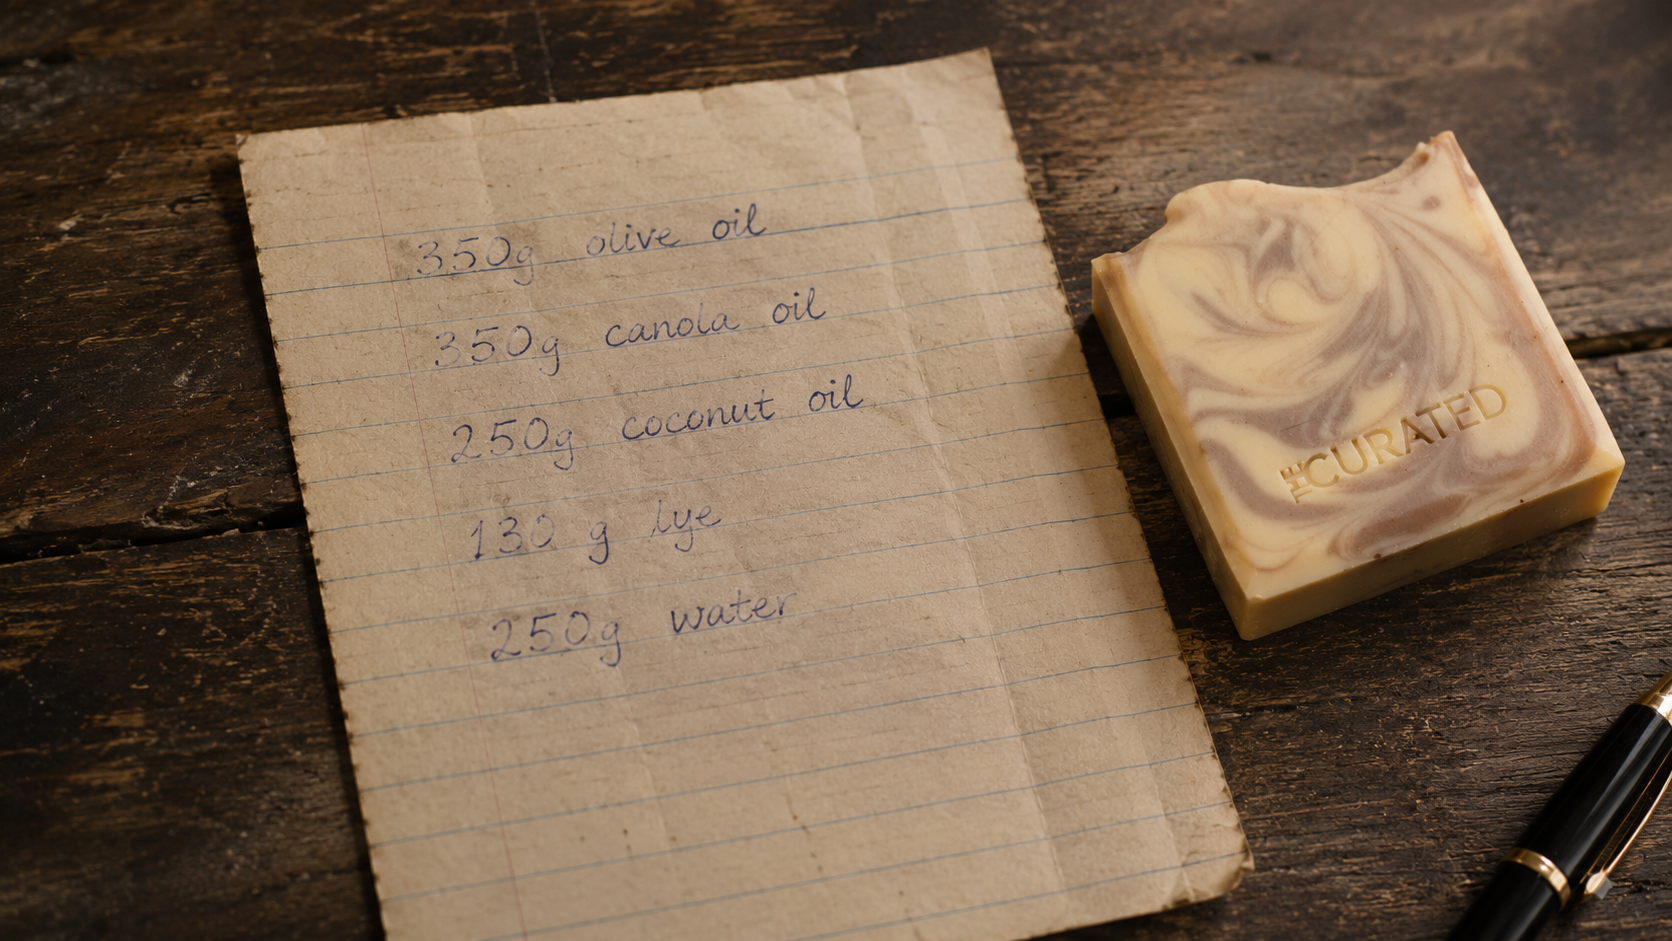 350g olive oil
350g canola oil
250g coconut oil
130 g lye
250g water
THE CURATED